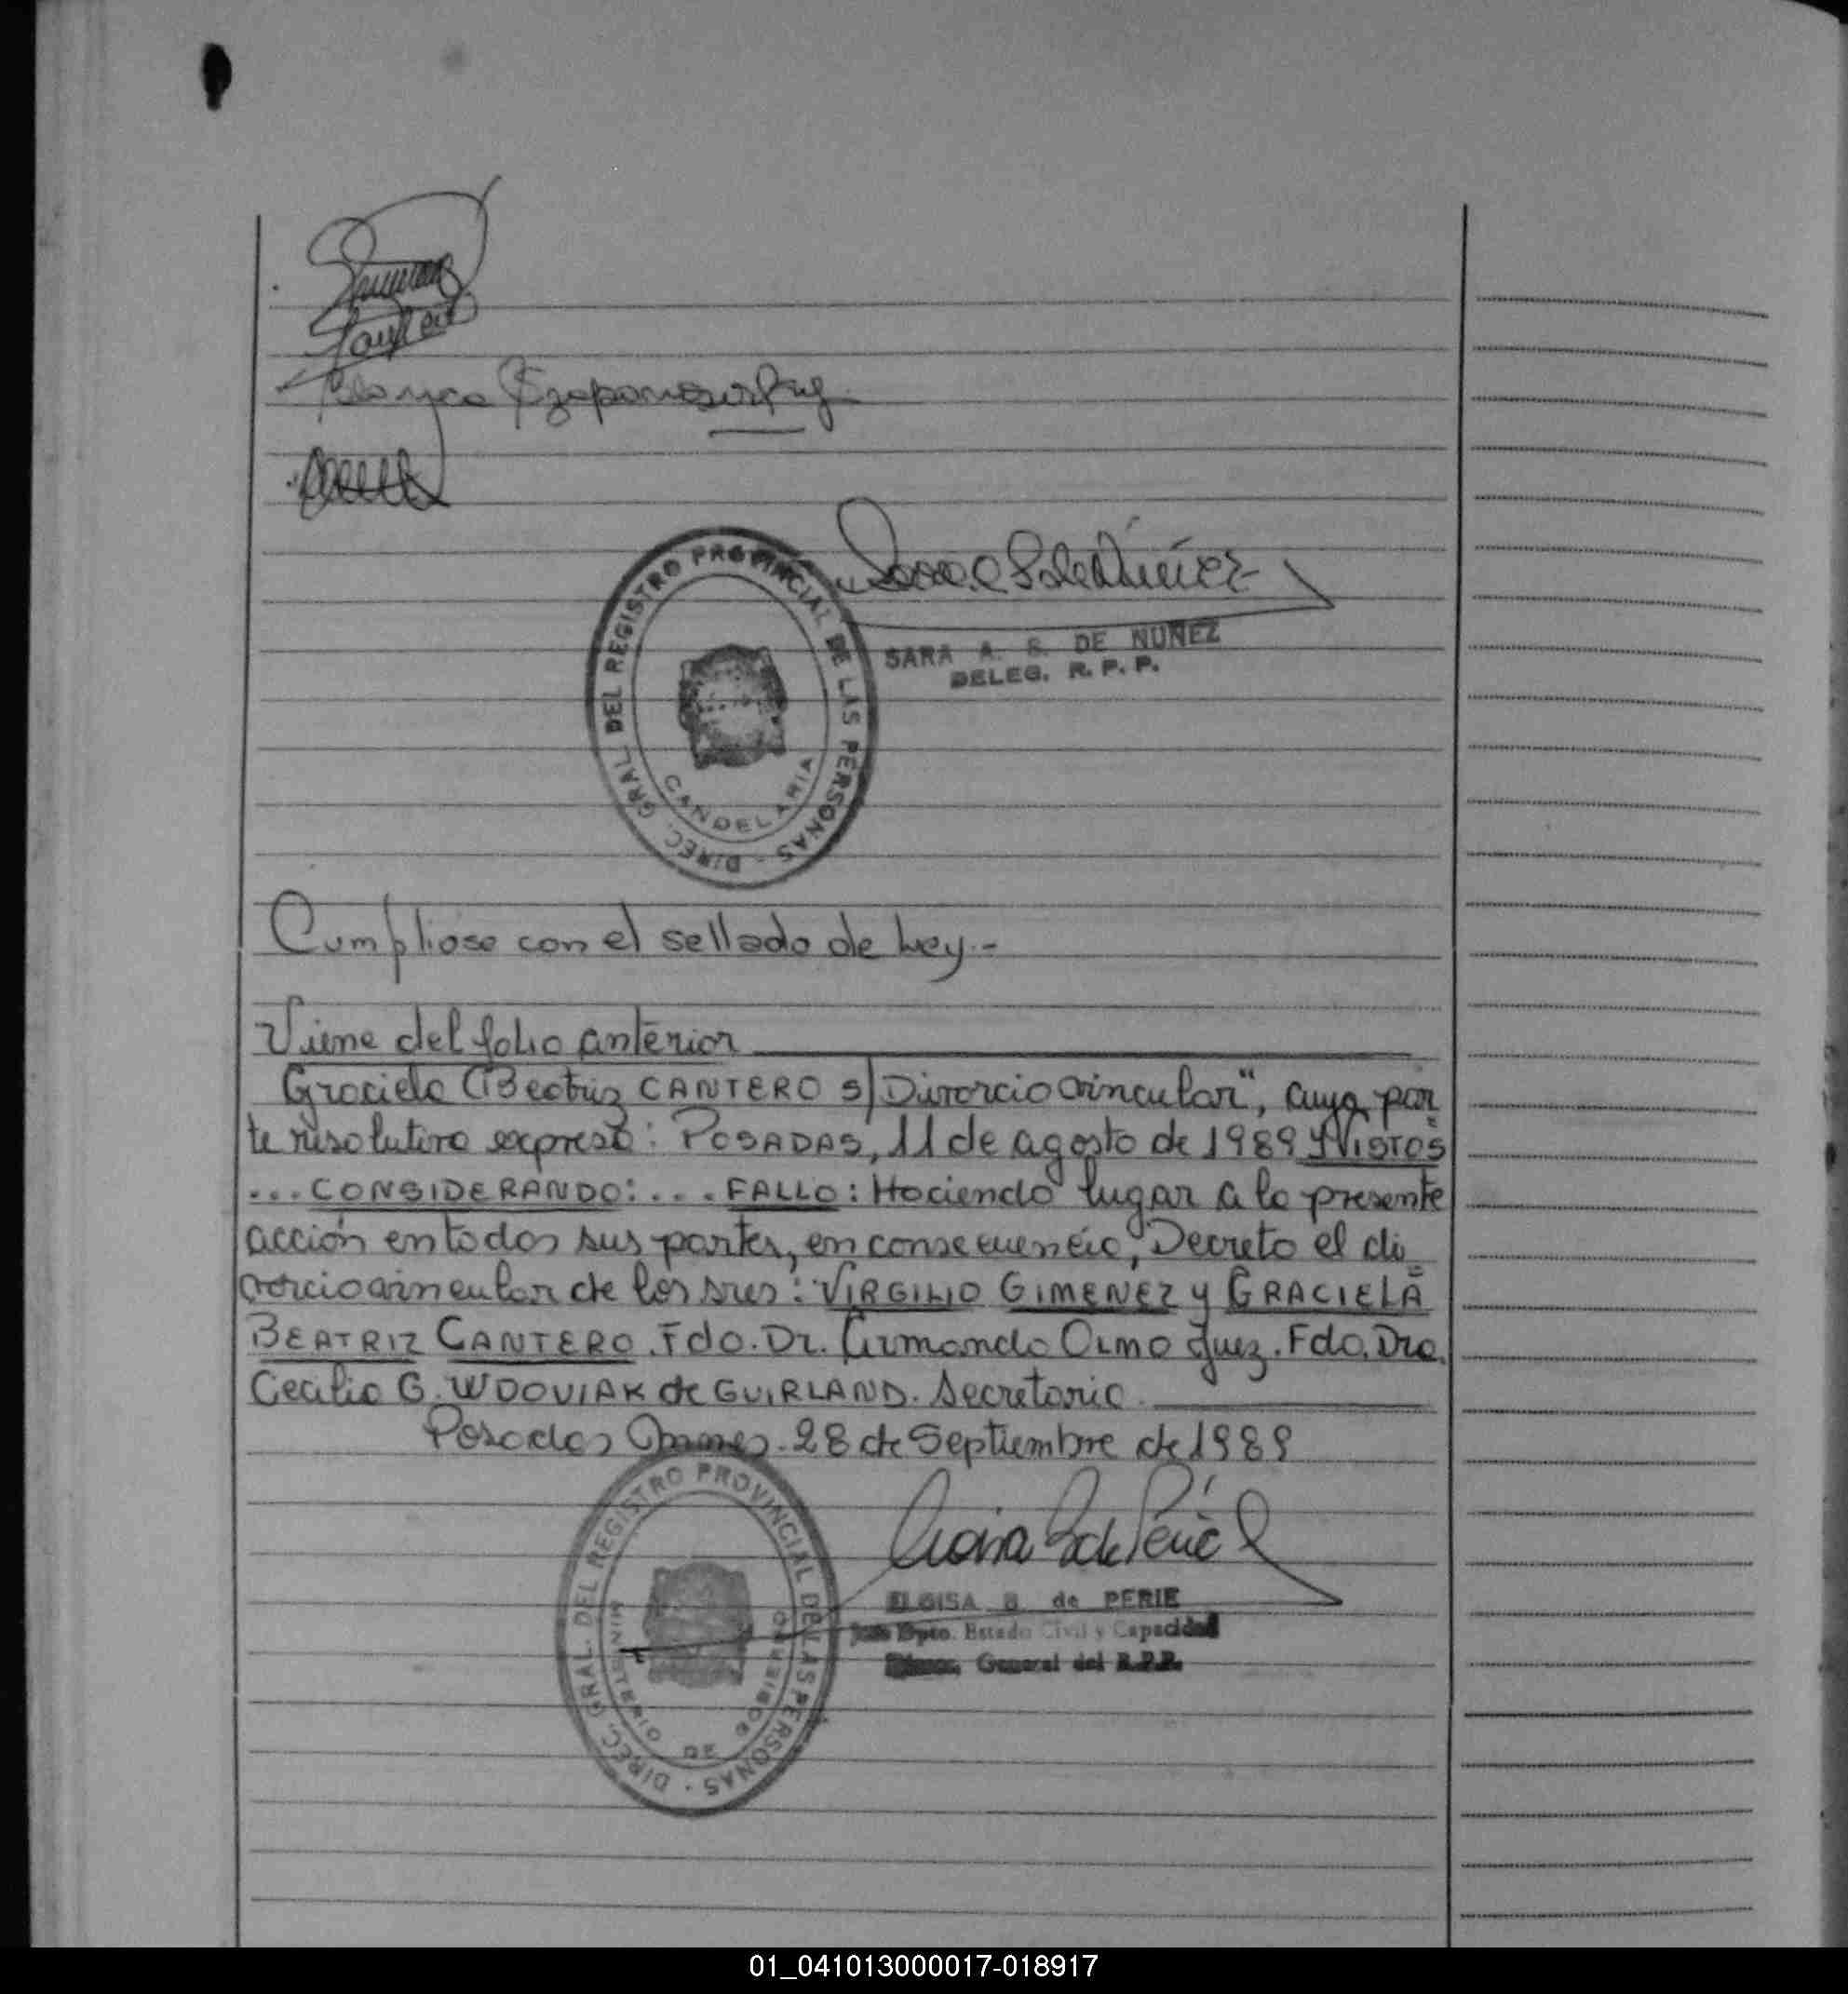 Blanca
SARA A. S. DE NUÑEZ
DELEG. R. P. P.
DIREC. GRAL. DEL REGISTRO PROVINCIAL DE LAS PERSONAS -
CANDELARIA
Cumpliose con el sellado de Ley.-
Viene del folio anterior
Graciela Beatriz CANTERO s/Divorcio vincular", cuya par
te resolutiva expresa: POSADAS, 11 de agosto de 1989 Y VISTOS
... CONSIDERANDO: ... FALLO: Haciendo lugar a la presente
acción en todas sus partes, en consecuencia, Decreto el di
vorcio vincular de los sres: VIRGILIO GIMENEZ y GRACIELA
BEATRIZ CANTERO. Fdo. Dr. Armando OLMO Juez. Fdo. Dra.
Cecilia G. WDOVIAK de GUIRLAND. Secretaria.
Posadas Mnes. 28 de Septiembre de 1989
DIREC. GRAL. DEL REGISTRO PROVINCIAL DE LAS PERSONAS -
MINISTERIO DE GOBIERNO
ELOISA B. de PERIE
Jefe Dpto. Estado Civil y Capacidad
General del R.P.P.
01_041013000017-018917